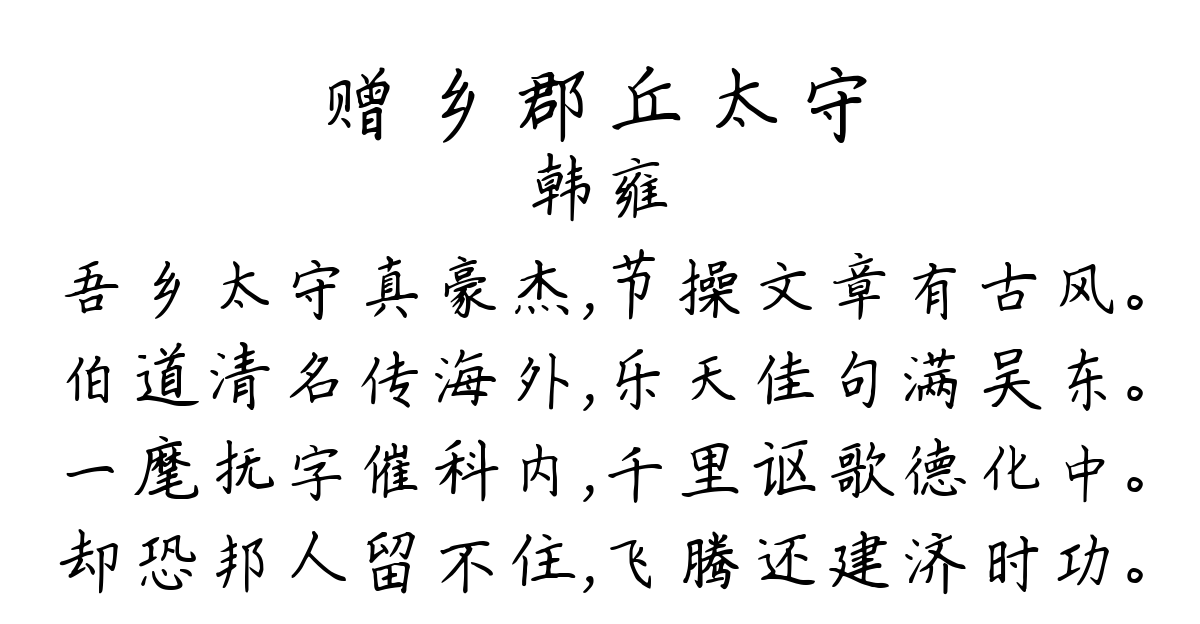 赠乡郡丘太守
韩雍
吾乡太守真豪杰,节操文章有古风。
伯道清名传海外,乐天佳句满吴东。
一麾抚字催科内,千里讴歌德化中。
却恐邦人留不住,飞腾还建济时功。